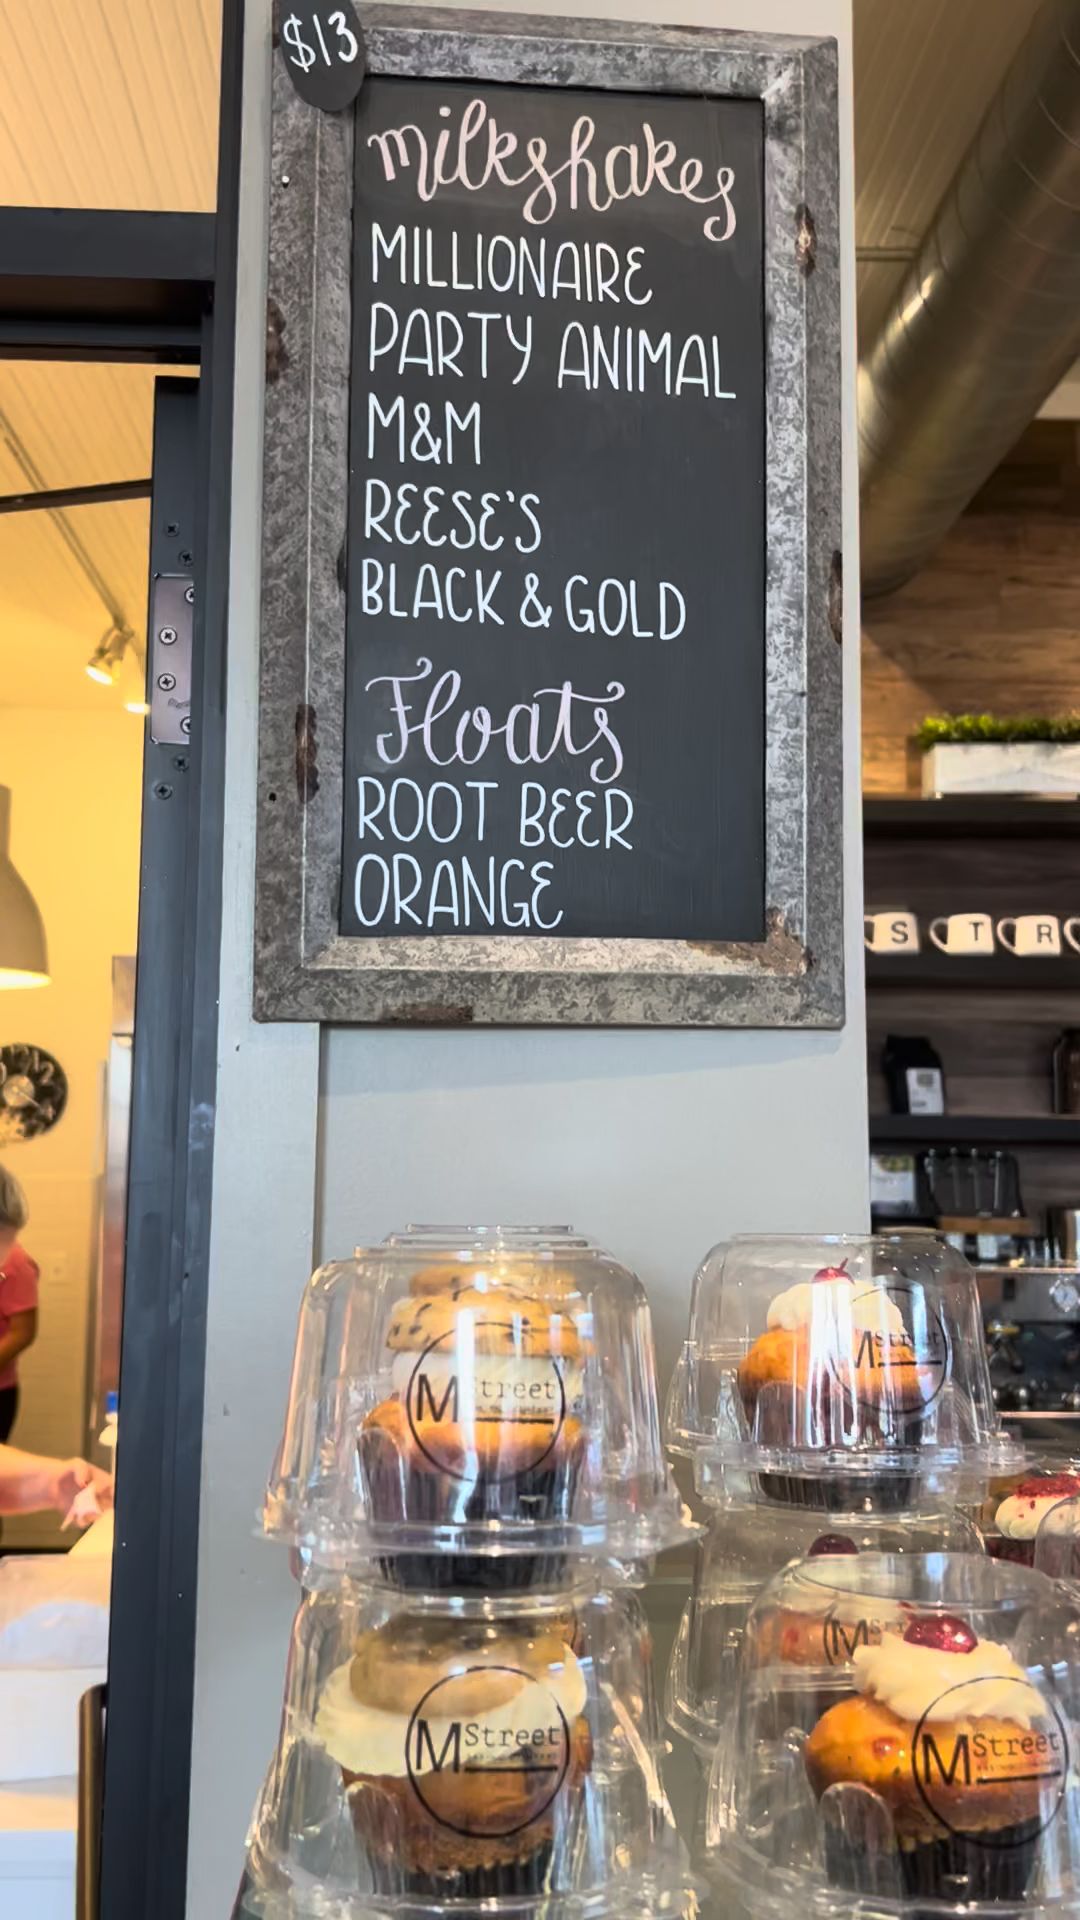 $13
milkshakes
MILLIONAIRE
PARTY ANIMAL
M&M
REESE'S
BLACK & GOLD
Floats
ROOT BEER
ORANGE
S T R
12
M Street
M Street
M Street
M Str
M Street